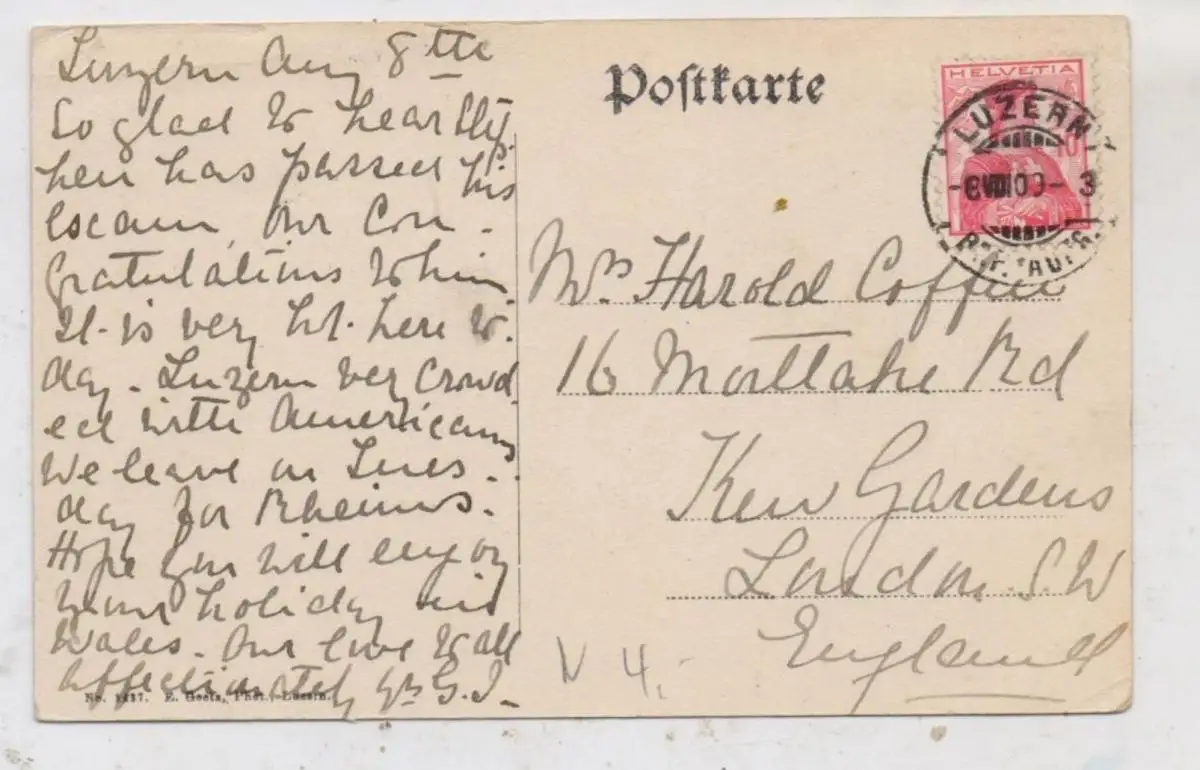 Luzern Aug 8th
So glad to hear Ste-
phen has passed his
Exam, Our Con-
gratulations to him.
It is very hot here to-
day - Luzern very Crowd
ed with Americans
We leave on Tues-
day for Rheims.
Hope you will enjoy
your holiday in
Wales. Our love to all
Affectionately Yrs G.I.
No. E. Goetz, Phot., Luzern.
Postkarte
HELVETIA
10
LUZERN
-8VIII09- 3
BRF. AUFG.
Mrs Harold Coffin
16 Mortlake Rd
Kew Gardens
London S.W
England
V 4.-